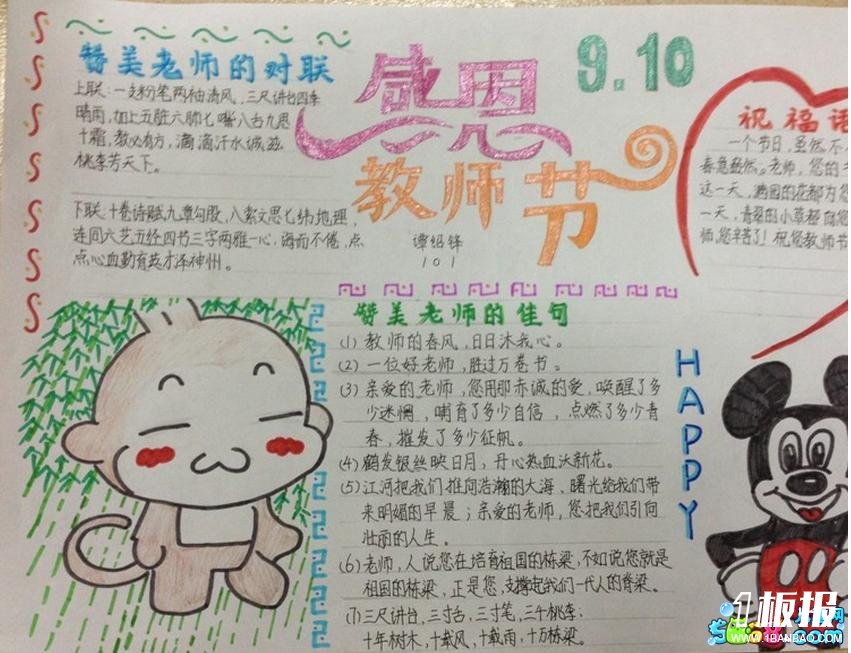 赞美老师的对联
上联:一支粉笔两袖清风,三尺讲台四季
晴雨,加上五脏六肺七嘴八舌九思
十霜,教必有方,滴滴汗水诚滋
桃李芳天下。
下联:十卷诗赋九章勾股,八索文思七纬地理,
连同六艺五经四书三字两雅一心,诲而不倦,点
点心血勤育英才泽神州。
感恩
教师节
9.10
101
祝福语
一个节日,虽然不
春意盎然;老师,您的
这一天,满园的花都为您
一天,青翠的小草都向您
师,您辛苦了!祝您教师节
赞美老师的佳句
(1) 教师的春风,日日沐我心。
(2) 一位好老师,胜过万卷书。
(3) 亲爱的老师,您用那赤诚的爱,唤醒了多
少迷惘,哺育了多少自信,点燃了多少青
春,摧发了多少征帆。
(4) 鹤发银丝映日月,丹心热血沃新花。
(5) 江河把我们推向浩瀚的大海,曙光给我们带
来明媚的早晨;亲爱的老师,您把我们引向
壮丽的人生。
(6) 老师,人说您在培育祖国的栋梁,不如说您就是
祖国的栋梁,正是您,支撑起我们一代人的脊梁。
(7) 三尺讲台,三寸舌,三寸笔,三千桃李;
十年树木,十载风,十载雨,十万栋梁。
HAPPY
板报
WWW.1BANBAO.COM